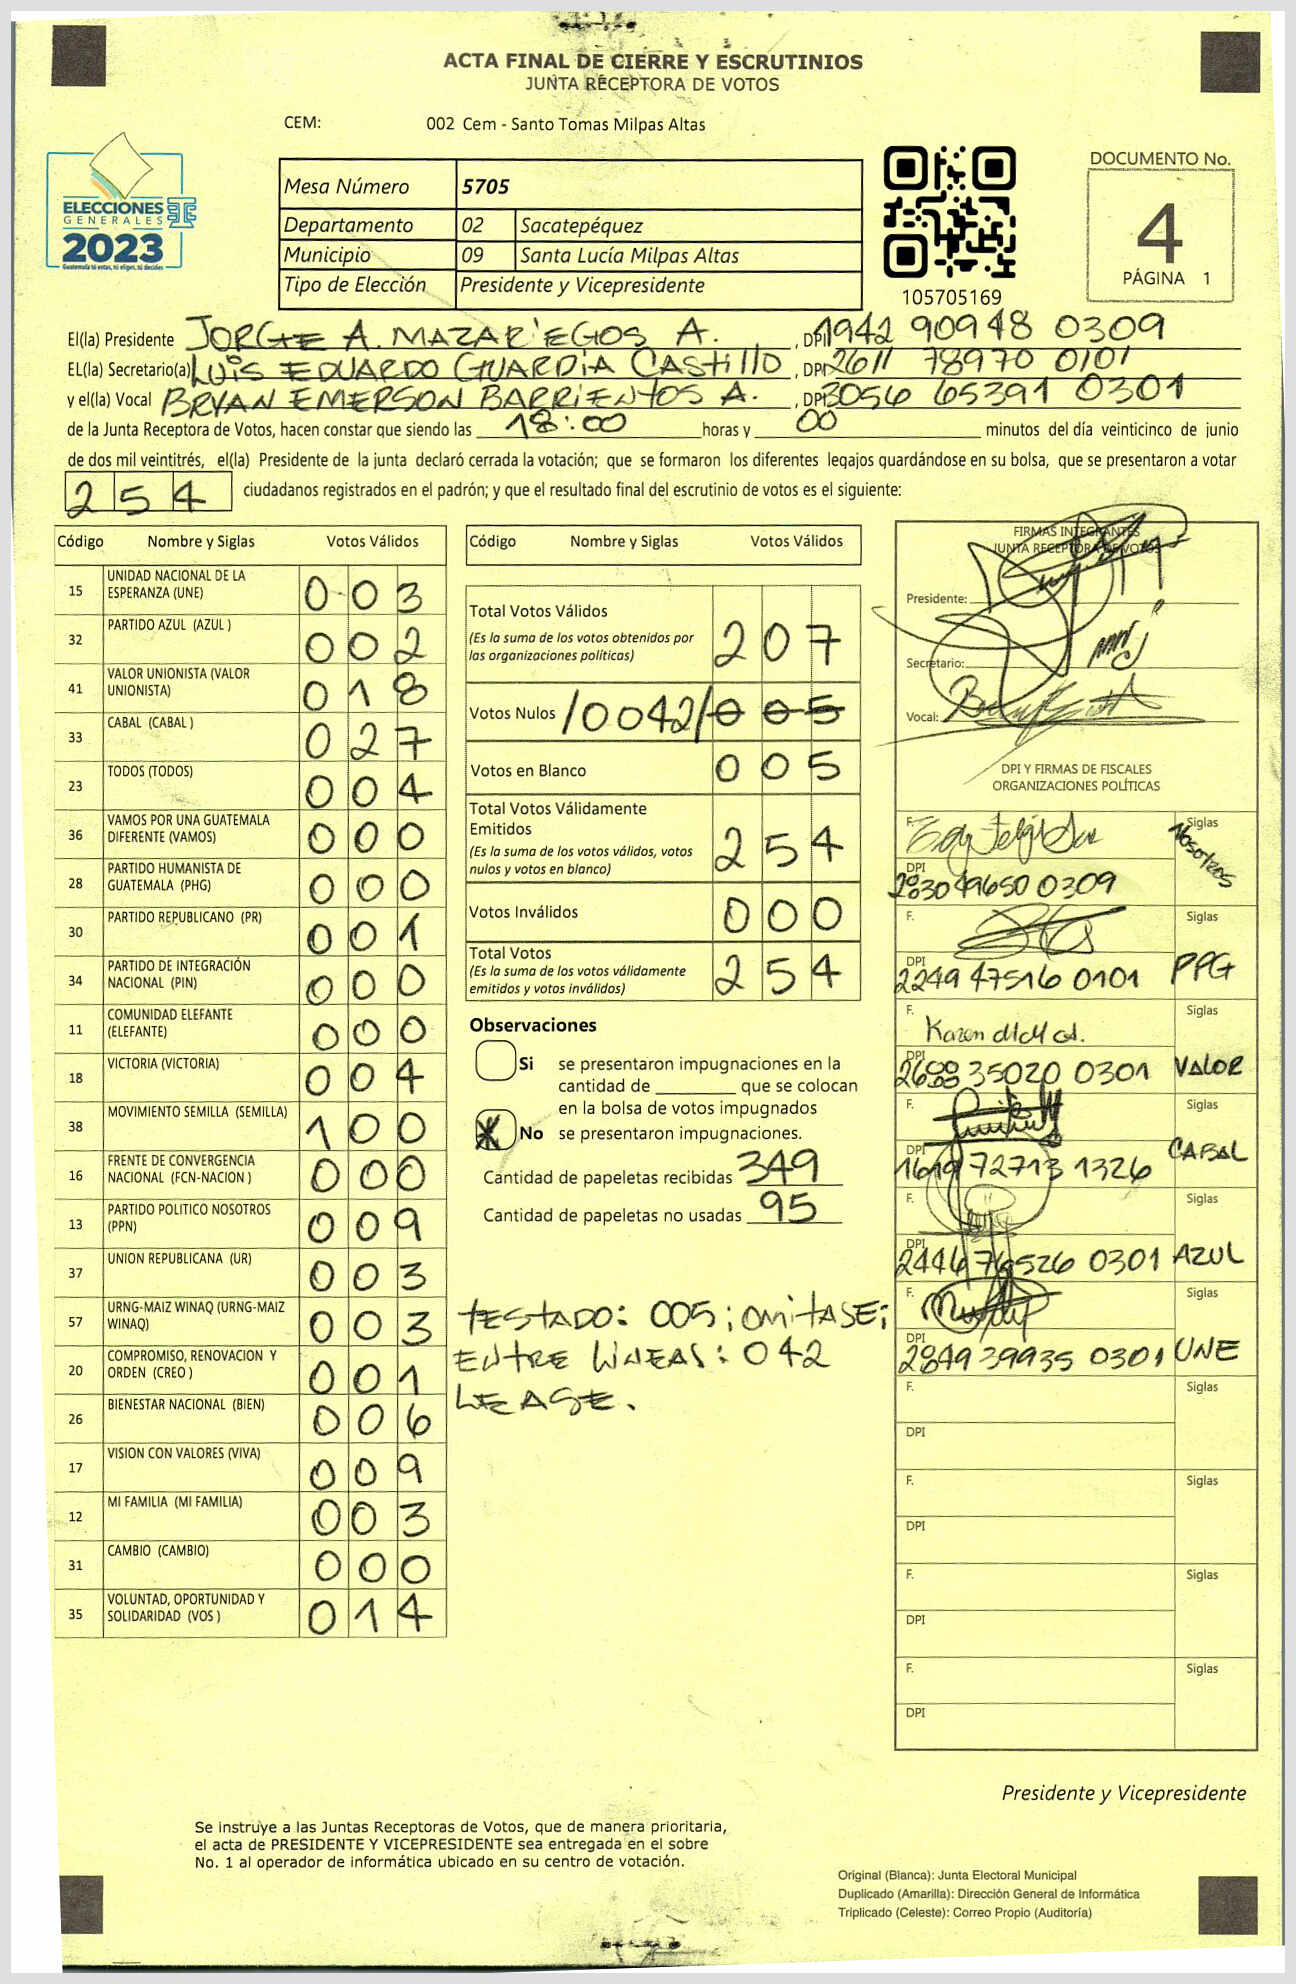 ACTA FINAL DE CIERRE Y ESCRUTINIOS
JUNTA RECEPTORA DE VOTOS
CEM: 002 Cem - Santo Tomas Milpas Altas
ELECCIONES
GENERALES
2023
Guatemala tú estas, tú eliges, tú decides
Mesa Número 5705
Departamento 02 Sacatepéquez
Municipio 09 Santa Lucía Milpas Altas
Tipo de Elección Presidente y Vicepresidente
105705169
DOCUMENTO No.
4
PÁGINA 1
El(la) Presidente JORGE A. MAZARIEGOS A. , DPI 1942 90948 0309
EL(la) Secretario(a) LUIS EDUARDO GUARDIA CASTILLO , DPI 2611 78970 0101
y el(la) Vocal BRYAN EMERSON BARRIENTOS A. , DPI 3056 65391 0301
de la Junta Receptora de Votos, hacen constar que siendo las 18:00 horas y 00 minutos del día veinticinco de junio
de dos mil veintitrés, el(la) Presidente de la junta declaró cerrada la votación; que se formaron los diferentes legajos guardándose en su bolsa, que se presentaron a votar
254 ciudadanos registrados en el padrón; y que el resultado final del escrutinio de votos es el siguiente:
Código Nombre y Siglas Votos Válidos
15 UNIDAD NACIONAL DE LA ESPERANZA (UNE) 003
32 PARTIDO AZUL (AZUL ) 002
41 VALOR UNIONISTA (VALOR UNIONISTA) 018
33 CABAL (CABAL ) 027
23 TODOS (TODOS) 004
36 VAMOS POR UNA GUATEMALA DIFERENTE (VAMOS) 000
28 PARTIDO HUMANISTA DE GUATEMALA (PHG) 000
30 PARTIDO REPUBLICANO (PR) 001
34 PARTIDO DE INTEGRACIÓN NACIONAL (PIN) 000
11 COMUNIDAD ELEFANTE (ELEFANTE) 000
18 VICTORIA (VICTORIA) 004
38 MOVIMIENTO SEMILLA (SEMILLA) 100
16 FRENTE DE CONVERGENCIA NACIONAL (FCN-NACION ) 000
13 PARTIDO POLITICO NOSOTROS (PPN) 009
37 UNION REPUBLICANA (UR) 003
57 URNG-MAIZ WINAQ (URNG-MAIZ WINAQ) 003
20 COMPROMISO, RENOVACION Y ORDEN (CREO ) 001
26 BIENESTAR NACIONAL (BIEN) 006
17 VISION CON VALORES (VIVA) 009
12 MI FAMILIA (MI FAMILIA) 003
31 CAMBIO (CAMBIO) 000
35 VOLUNTAD, OPORTUNIDAD Y SOLIDARIDAD (VOS ) 014
Código Nombre y Siglas Votos Válidos
Total Votos Válidos 207
(Es la suma de los votos obtenidos por
las organizaciones políticas)
Votos Nulos /0042/ 005
Votos en Blanco 005
Total Votos Válidamente
Emitidos 254
(Es la suma de los votos válidos, votos
nulos y votos en blanco)
Votos Inválidos 000
Total Votos 254
(Es la suma de los votos válidamente
emitidos y votos inválidos)
Observaciones
Si se presentaron impugnaciones en la
cantidad de ________ que se colocan
en la bolsa de votos impugnados
X No se presentaron impugnaciones.
Cantidad de papeletas recibidas 349
Cantidad de papeletas no usadas 95
TESTADO: 005; OMITASE;
ENTRE LINEAS: 042
LEASE.
FIRMAS INTEGRANTES
JUNTA RECEPTORA DE VOTOS
Presidente:
Secretario:
Vocal:
DPI Y FIRMAS DE FISCALES
ORGANIZACIONES POLÍTICAS
F. Siglas Nosotros
DPI
F. Siglas PPG
DPI 2249 47516 0101
F. Siglas VALOR
DPI
F. Siglas CABAL
DPI 1619 72713 1326
F. Siglas AZUL
DPI
F. Siglas UNE
DPI
F. Siglas
DPI
F. Siglas
DPI
F. Siglas
DPI
F. Siglas
DPI
Presidente y Vicepresidente
Se instruye a las Juntas Receptoras de Votos, que de manera prioritaria,
el acta de PRESIDENTE Y VICEPRESIDENTE sea entregada en el sobre
No. 1 al operador de informática ubicado en su centro de votación.
Original (Blanca): Junta Electoral Municipal
Duplicado (Amarilla): Dirección General de Informática
Triplicado (Celeste): Correo Propio (Auditoría)